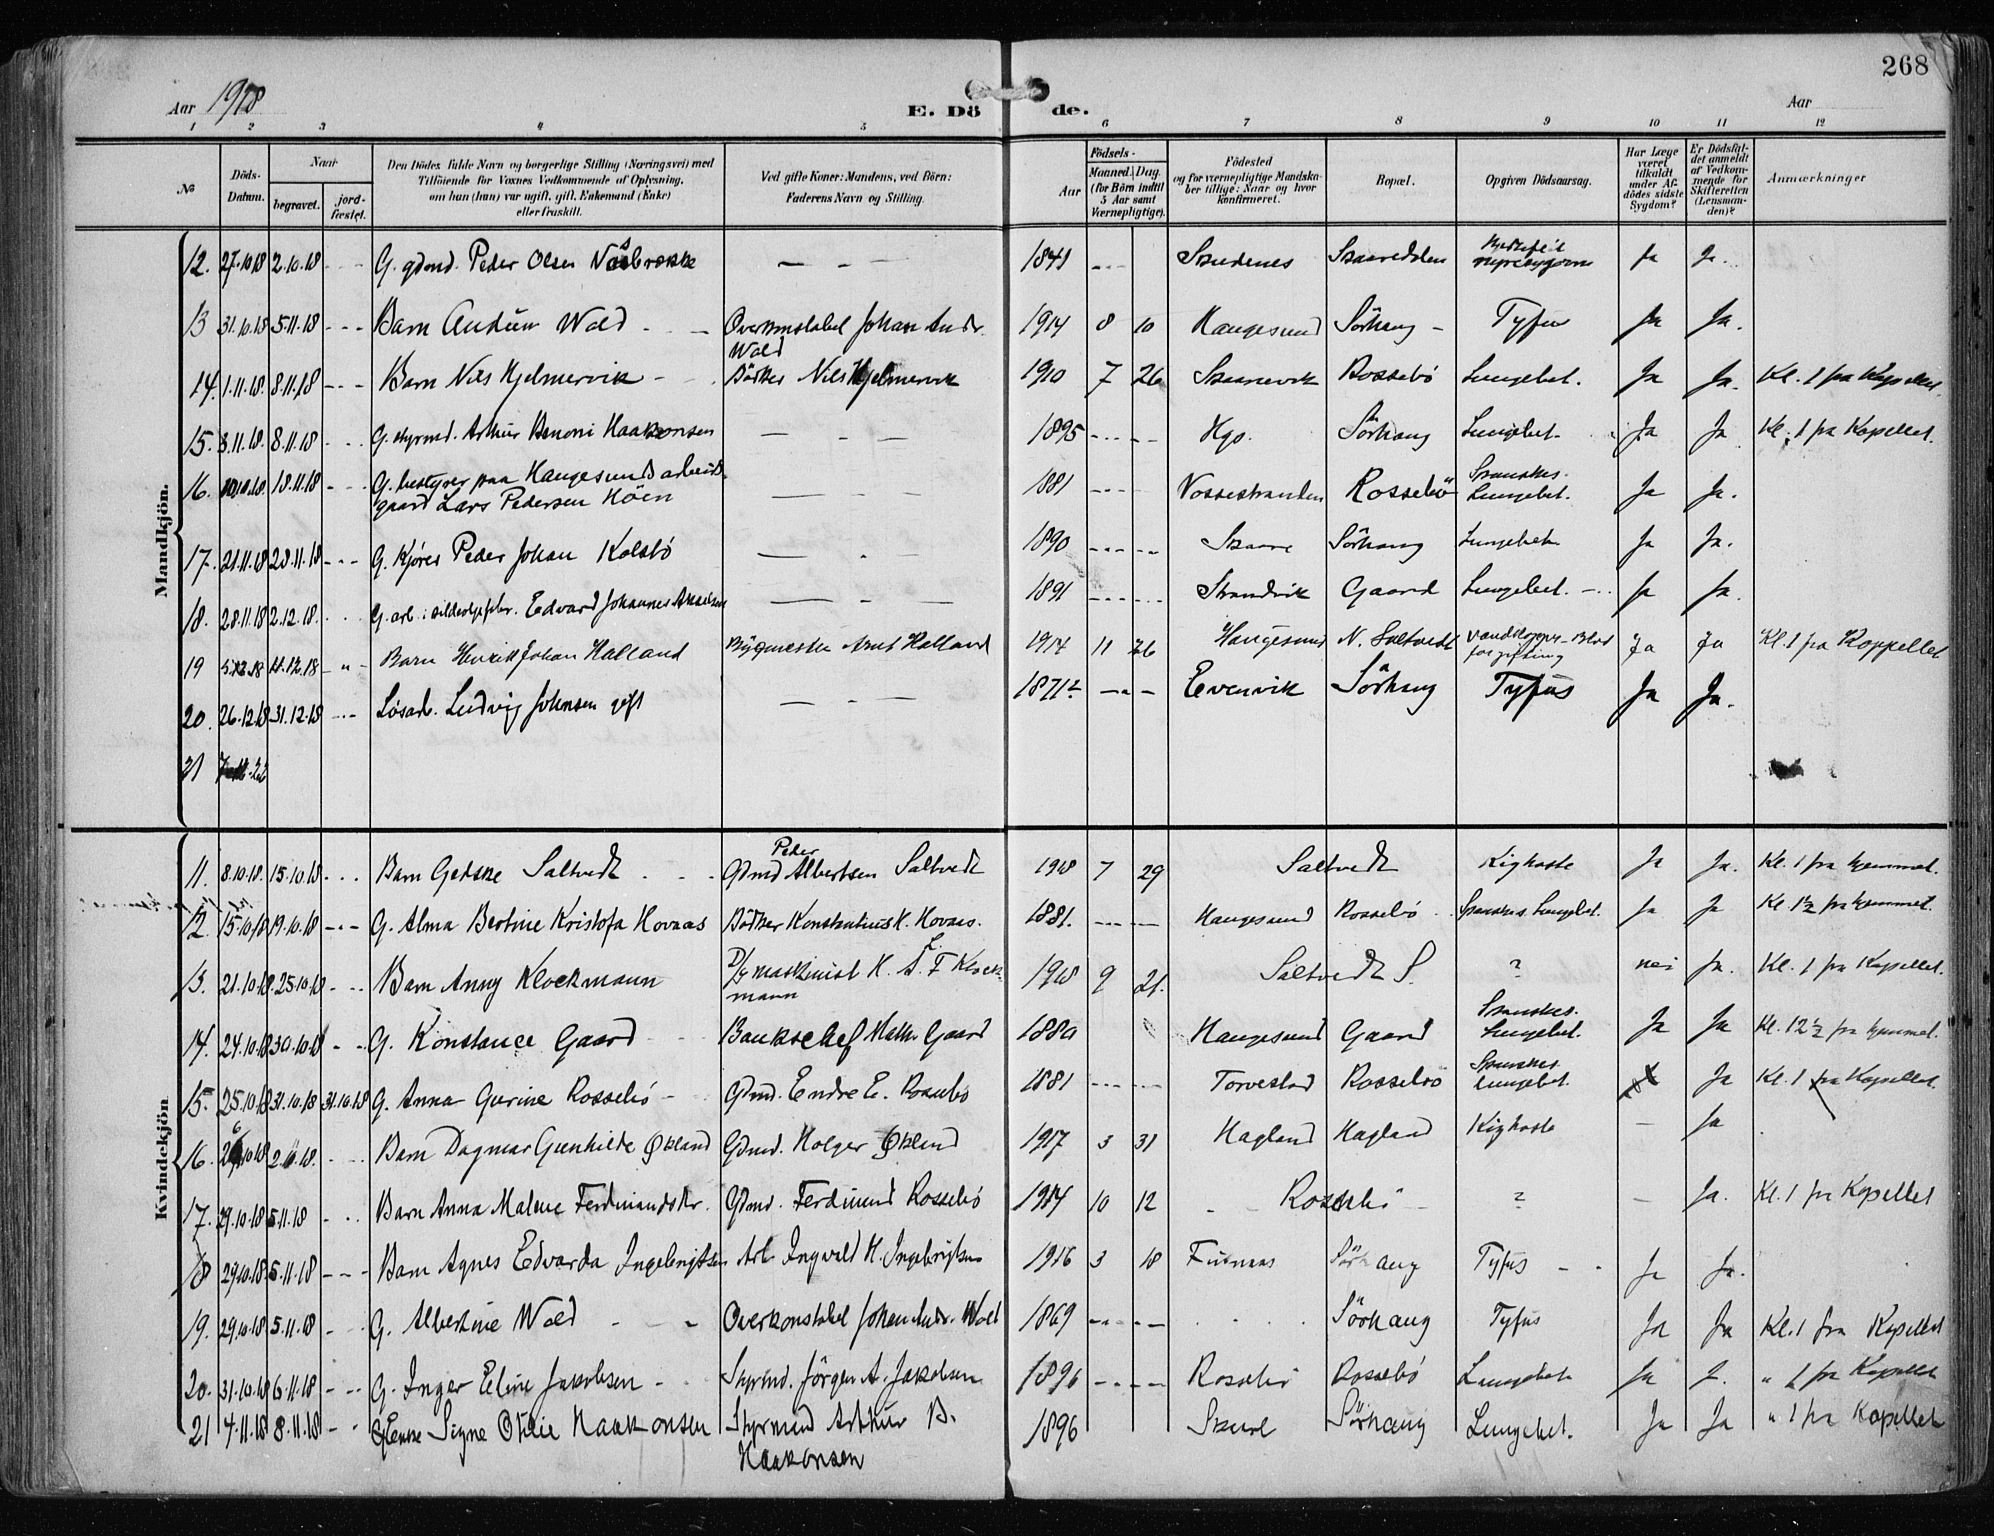 268
Aar 1918
E. Dö de.
Aar
1 2 3 4 5 6 7 8 9 10 11 12
No
Döds-Datum.
Naar
begravet.
jord-fæstet.
Den Dödes fulde Navn og borgerlige Stilling (Næringsvei) med
Tilföiende for Voxnes Vedkommende af Oplysning,
om han (hun) var ugift, gift, Enkemand (Enke)
eller fraskilt.
Ved gifte Koner: Mandens, ved Börn:
Faderens Navn og Stilling.
Födsels-
Aar
Maaned. Dag.
(for Börn indtil
5 Aar samt
Værnepligtige).
Födested
og for værnepligtige Mandska-
ber tillige: Naar og hvor
konfirmeret.
Bopæl.
Opgiven Dödsaarsag.
Har Læge
været
tilkaldt
under Af-
dödes sidste
Sygdom?
Er Dödsfal-
det anmeldt
af Vedkom-
mende for
Skifteretten
(Lensman-
den)?
Anmærkninger
Mandkjön.
12. 27.10.18 2.10.18 G. gdmd. Peder Olsen 1841 Skudenes Ja Ja.
13 31.10.18 5.11.18 Barn Audun Wold Overkonstabel Johan Andr. Wold 1914 8 10 Haugesund Sörhaug Tyfus Ja Ja.
14. 1.11.18. 8.11.18 Barn Nils Hjelmervik Bödker Nils Hjelmervik 1910 7 26 Skaanevik Rossebö Lungebet. Ja Ja. Kl. 1 fra Kapellet.
15. 3.11.18. 8.11.18 G. styrmd. Arthur Benoni Haakonsen 1895 Hgs. Sörhaug Lungebet. Ja Ja Kl. 1 fra Kapellet.
16. 18.11.18 G. bestyrer paa Haugesunds arbeids-
gaard Lars Pedersen Höen 1881 Vossestranden Rossebö Spanskes. Lungebet. Ja Ja.
17. 21.11.18 28.11.18 G. Kjörer Peder Johan Kolstö 1890 Skaare Sörhaug Lungebet. Ja Ja.
18. 28.11.18 2.12.18. G. arb. i Edvard Johannes Akselsen 1891 Strandvik Gaard Lungebet. Ja Ja.
19 5.12.18 11.12.18 Barn Henrik Johan Halland Bygmester Arnt Halland 1914 11 26 Haugesund N. Saltvedt Vandkopper - Blod
forgiftning Ja Ja Kl. 1 fra Kappellet
20. 26.12.18 31.12.18 Løsarb. Ludvig Johnsen gift 1871 Evenvik Sörhaug Tyfus Ja Ja.
21
Kvindekjön
11. 8.10.18. 15.10.18 Barn Gedske Saltvedt Gdmd Peder Albertsen Saltvedt 1918 7 29 Saltvedt Kighoste Ja Ja. Kl. 1 fra hjemmet.
12. 15.10.18 19.10.18 G. Alma Bertine Kristofa Hovaas Bödker Konstantius K. Hovaas. 1881. Haugesund Rossebö Spanskes. Lungebet. Ja Ja Kl. 1½ fra hjemmet.
13. 21.10.18. 25.10.18 Barn Anny Klockmann D/s maskinist K. L. F Klock-
mann 1918 9 21. Saltvedt S. ? nei Ja. Kl. 1 fra Kapellet.
14. 24.10.18 30.10.18 G. Konstance Gaard Bankchef Gaard Haugesund Gaard Spanskes.
Lungebet. Ja Ja Kl. 12½ fra hjemmet.
15. 25.10.18 31.10.18 31.10.18 G. Anna Gurine Rossebö Gdmd. Endre E. Rossebö 1881 Torvestad Rossebö Spanskes
Lungebet. Ja Kl. 1 fra Kapellet.
16. Barn Dagmar Gunhilde Økland Gdmd. Holger Økland 1917 3 31 Hagland Hagland Kighoste Ja
17. 29.10.18 5.11.18 Barn Anna Malene Ferdinandsdtr. Gdmd. Ferdinand Rossebö 1914 10 12 Rossebö ? Ja. Kl. 1 fra Kapellet
18 29.10.18 5.11.18 Barn Agnes Edvarda Ingebrigtsen Arb Ingvald H. Ingebrigtsen 1916 3 18 Sörhaug Tyfus Ja Ja.
19. 29.10.18 5.11.18 G. Albertine Wold Overkonstabel Johan Andr. Wold 1869 Sörhaug Tyfus Ja Ja Kl. 1 fra Kapellet
20. 31.10.18 6.11.18 G. Inger Eline Jakobsen Styrmd. Jörgen A. Jakobsen 1896 Rossebö Rossebö Lungebet Ja J. " 1 fra Kapellet
21 4.11.18 8.11.18 Enke Signe Otilie Haakonsen Styrmand Arthur B.
Haakonsen 1896 Sörhaug Lungebet. Ja Ja " 1 fra Kapellet